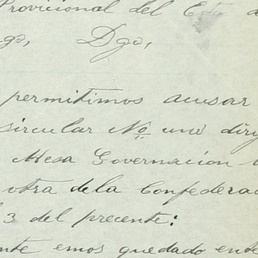 Provicional del Esto
Dgo,
permitimos acusar
sircular No. uno diri
Mesa Governacion
otra de la Confedera
3 del precente:
nte emos quedado ente